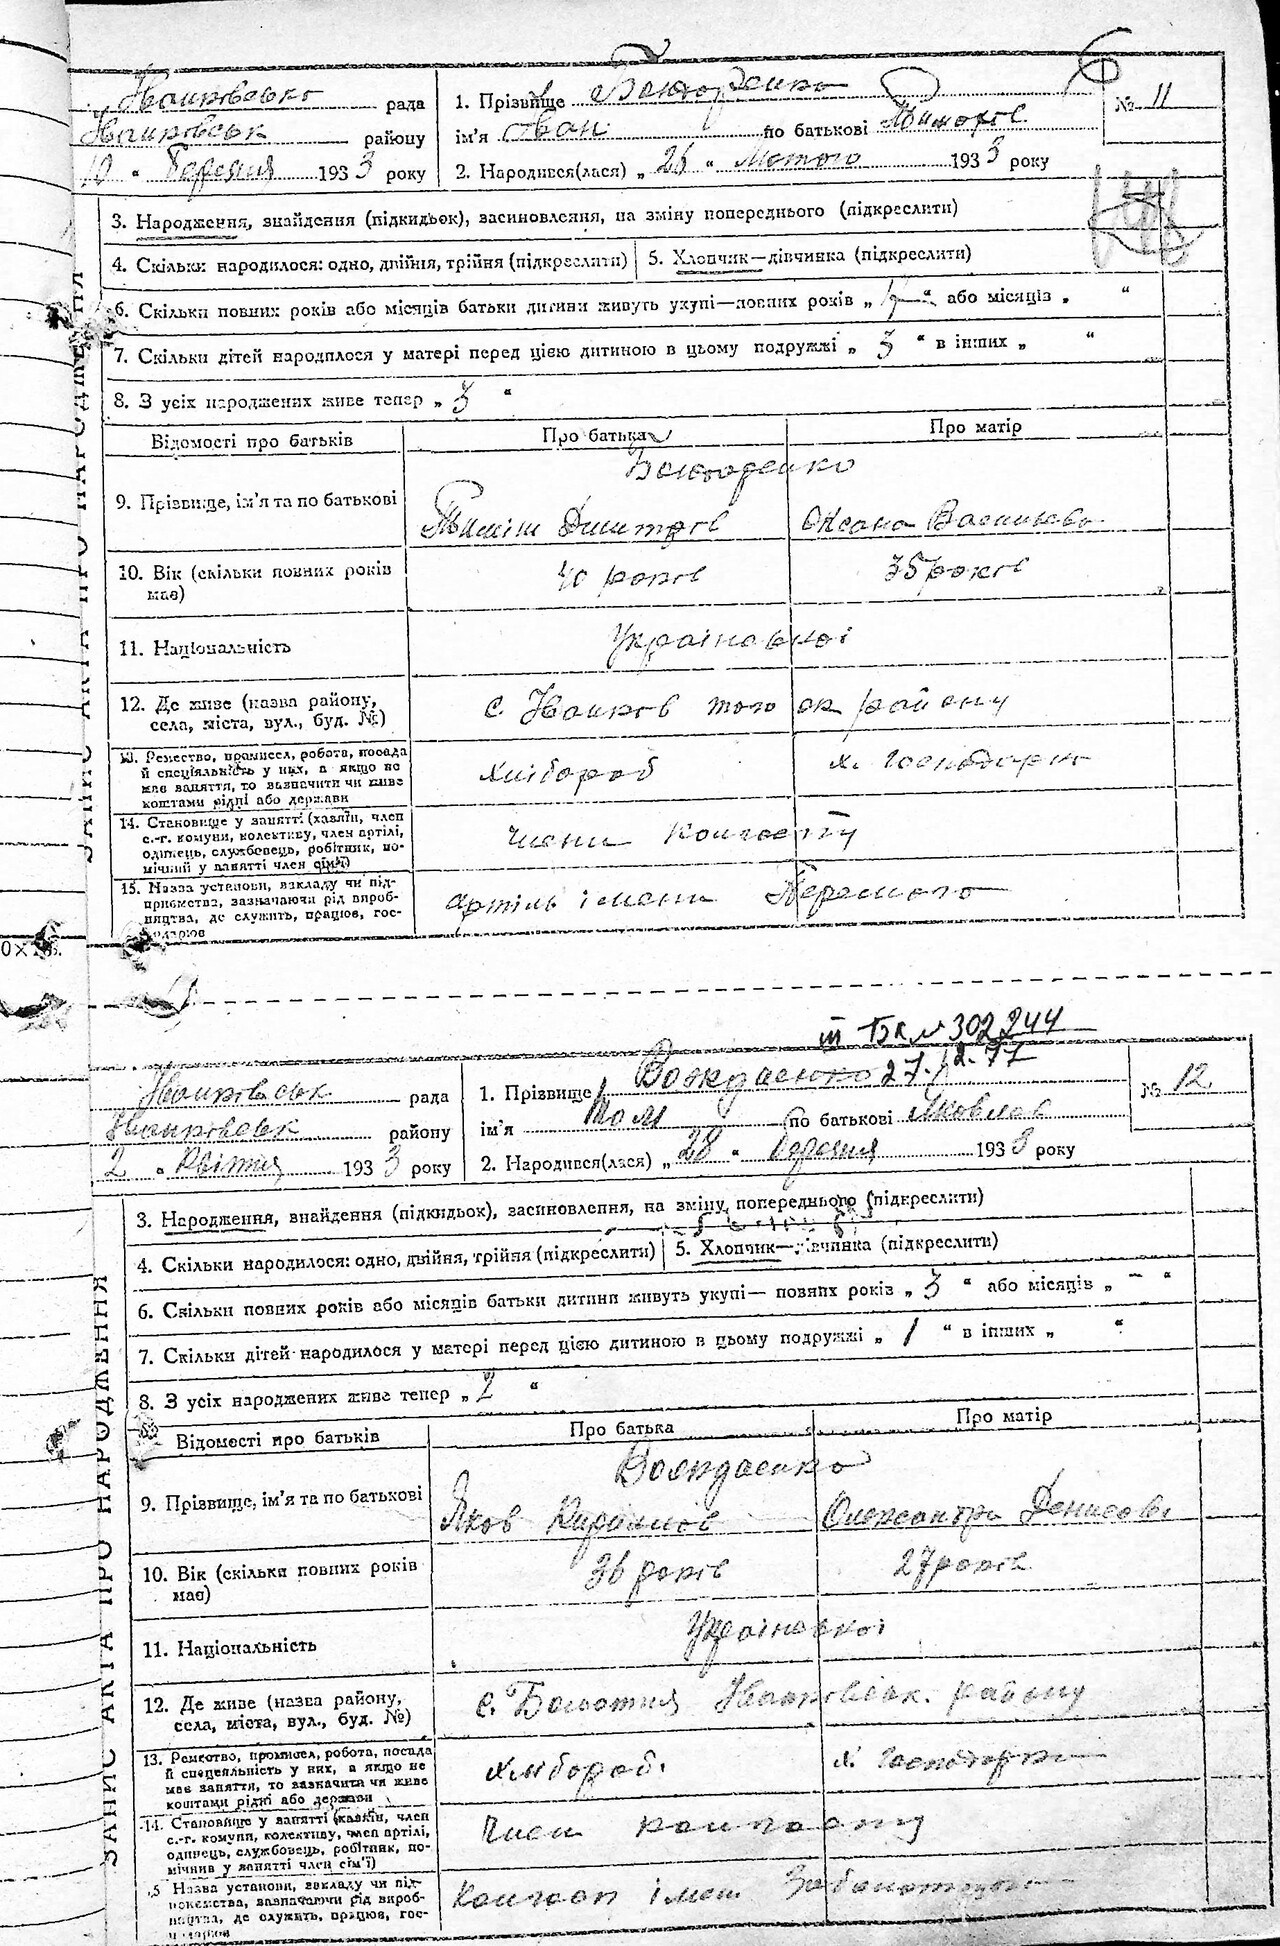 6
рада
району
10 " Березня 1933 року
1. Прізвище Бондаренко
ім'я Іван по батькові
2. Народився(лася) „ 26 " Лютого 1933 року
№ 11
3. Народження, знайдення (підкидьок), засиновлення, на зміну попереднього (підкреслити)
4. Скільки народилося: одно, двійня, трійня (підкреслити)
5. Хлопчик—дівчинка (підкреслити)
6. Скільки повних років або місяців батьки дитини живуть укупі—повних років „ 17 " або місяців „ "
7. Скільки дітей народилося у матері перед цією дитиною в цьому подружжі „ 3 " в інших „ "
8. З усіх народжених живе тепер „ 3 "
Відомості про батьків
Про батька
Про матір
Бондаренко
9. Прізвище, ім'я та по батькові
Дмитрів
Оксана Васильєва
10. Вік (скільки повних років має)
40 років
35 років
11. Національність
Української
12. Де живе (назва району, села, міста, вул., буд. №)
с. того ж району
13. Ремество, промисел, робота, посада
й спеціяльність у них, а якщо не
має заняття, то зазначити чи живе
коштами рідні або держави
хлібороб
х. господарка
14. Становище у занятті (хазяїн, член
с.-г. комуни, колективу, член артілі,
одинець, службовець, робітник, по-
мічний у занятті член сім'ї)
члени колгоспу
15. Назва установи, закладу чи під-
приємства, зазначаючи рід вироб-
ництва, де служить, працює, гос-
подарює
артіль імени Перемога
ЗАПИС АКТА ПРО НАРОДЖЕННЯ
ІІІ БК № 302244
27.12.77
рада
району
2 " Квітня 1933 року
1. Прізвище
ім'я по батькові Яковлев
2. Народився(лася) „ 28 " Березня 1933 року
№ 12
3. Народження, знайдення (підкидьок), засиновлення, на зміну попереднього (підкреслити)
4. Скільки народилося: одно, двійня, трійня (підкреслити)
5. Хлопчик—дівчинка (підкреслити)
6. Скільки повних років або місяців батьки дитини живуть укупі— повних років „ 3 " або місяців „ – "
7. Скільки дітей народилося у матері перед цією дитиною в цьому подружжі „ 1 " в інших „ "
8. З усіх народжених живе тепер „ 2 "
Відомості про батьків
Про батька
Про матір
9. Прізвище, ім'я та по батькові
Яков
Олександра Денисов.
10. Вік (скільки повних років має)
36 років
27 років
11. Національність
Української
12. Де живе (назва району, села, міста, вул., буд. №)
с. Болотня району
13. Ремество, промисел, робота, посада
й спеціяльність у них, а якщо не
має заняття, то зазначити чи живе
коштами рідні або держави
хлібороб.
х. господарки
14. Становище у занятті (хазяїн, член
с.-г. комуни, колективу, член артілі,
одинець, службовець, робітник, по-
мічний у занятті член сім'ї)
Член колгоспу
5 Назва установи, закладу чи під-
приємства, зазначаючи рід вироб-
ництва, де служить, працює, гос-
подарює
Колгосп імени
ЗАПИС АКТА ПРО НАРОДЖЕННЯ